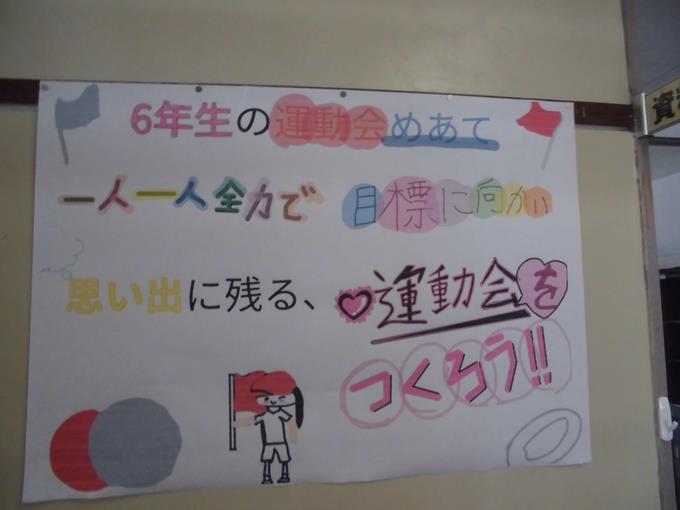 6年生の運動会めあて
一人一人全力で 目標に向かい
思い出に残る、運動会を
つくろう!!
資